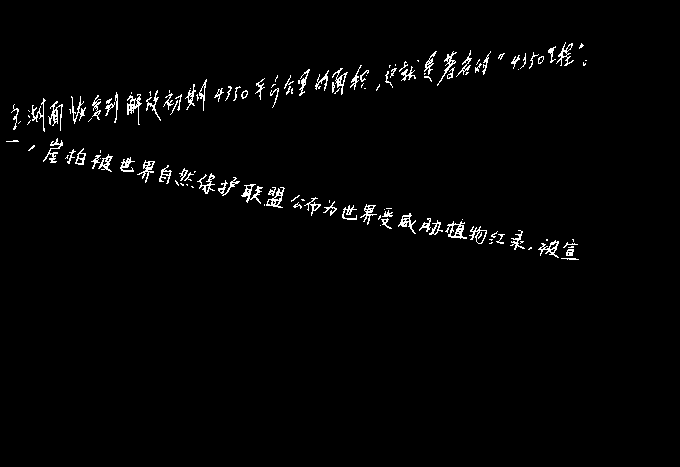 主湖面恢复到解放初期4350平方公里的面积，这就是著名的“4350工程”。
一，崖柏被世界自然保护联盟公布为世界受威胁植物红录，被宣